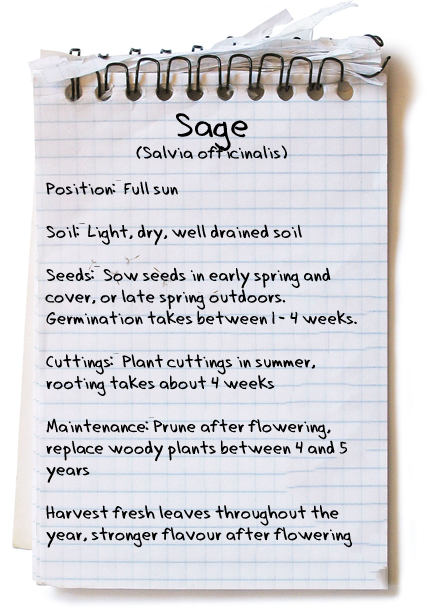 Sage
(Salvia officinalis)
Position: Full sun
Soil: Light, dry, well drained soil
Seeds: Sow seeds in early spring and
cover, or late spring outdoors.
Germination takes between 1- 4 weeks.
Cuttings: Plant cuttings in summer,
rooting takes about 4 weeks
Maintenance: Prune after flowering,
replace woody plants between 4 and 5
years
Harvest fresh leaves throughout the
year, stronger flavour after flowering